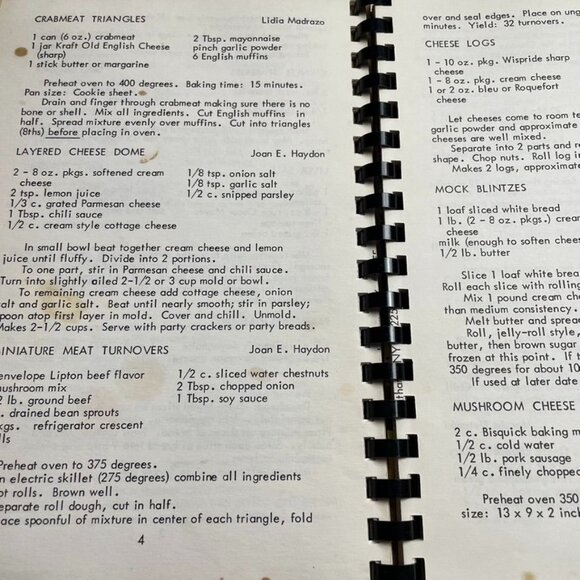 CRABMEAT TRIANGLES Lidia Madrazo
1 can (6 oz.) crabmeat 2 Tbsp. mayonnaise
1 jar Kraft Old English Cheese pinch garlic powder
(sharp) 6 English muffins
1 stick butter or margarine
Preheat oven to 400 degrees. Baking time: 15 minutes.
Pan size: Cookie sheet.
Drain and finger through crabmeat making sure there is no
bone or shell. Mix all ingredients. Cut English muffins in
half. Spread mixture evenly over muffins. Cut into triangles
(8ths) before placing in oven.
LAYERED CHEESE DOME Joan E. Haydon
2 - 8 oz. pkgs. softened cream 1/8 tsp. onion salt
cheese 1/8 tsp. garlic salt
2 tsp. lemon juice 1/2 c. snipped parsley
1/3 c. grated Parmesan cheese
1 Tbsp. chili sauce
1/2 c. cream style cottage cheese
In small bowl beat together cream cheese and lemon
juice until fluffy. Divide into 2 portions.
To one part, stir in Parmesan cheese and chili sauce.
Turn into slightly oiled 2-1/2 or 3 cup mold or bowl.
To remaining cream cheese add cottage cheese, onion
salt and garlic salt. Beat until nearly smooth; stir in parsley;
spoon atop first layer in mold. Cover and chill. Unmold.
Makes 2-1/2 cups. Serve with party crackers or party breads.
MINIATURE MEAT TURNOVERS Joan E. Haydon
envelope Lipton beef flavor 1/2 c. sliced water chestnuts
mushroom mix 2 Tbsp. chopped onion
2 lb. ground beef 1 Tbsp. soy sauce
c. drained bean sprouts
kgs. refrigerator crescent
lls
Preheat oven to 375 degrees.
n electric skillet (275 degrees) combine all ingredients
ot rolls. Brown well.
eparate roll dough, cut in half.
ace spoonful of mixture in center of each triangle, fold
4
over and seal edges. Place on ung
minutes. Yield: 32 turnovers.
CHEESE LOGS
1 - 10 oz. pkg. Wispride sharp
cheese
1 - 8 oz. pkg. cream cheese
1 or 2 oz. bleu or Roquefort
cheese
Let cheeses come to room te
garlic powder and approximate
cheeses are well mixed.
Separate into 2 parts and re
shape. Chop nuts. Roll log in
Makes 2 logs, approximate
MOCK BLINTZES
1 loaf sliced white bread
1 lb. (2 - 8 oz. pkgs.) cream
cheese
milk (enough to soften chees
1/2 lb. butter
Slice 1 loaf white brea
Roll each slice with rolling
Mix 1 pound cream ch
than medium consistency.
Melt butter and spread
Roll, jelly-roll style,
butter, then brown sugar
frozen at this point. If t
350 degrees for about 10
If used at later date
MUSHROOM CHEESE
2 c. Bisquick baking m
1/2 c. cold water
1/2 lb. pork sausage
1/4 c. finely chopped
Preheat oven 350
size: 13 x 9 x 2 inc